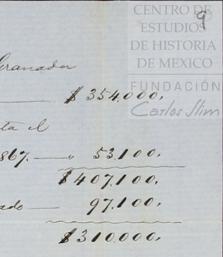 CENTRO DE
ESTUDIOS
DE HISTORIA
DE MEXICO
FUNDACIÓN
Carlos Slim
9
Granada
$354,000.
ta el
1867. — " 53,100.
$407,100.
ado — 97,100.
$310,000.